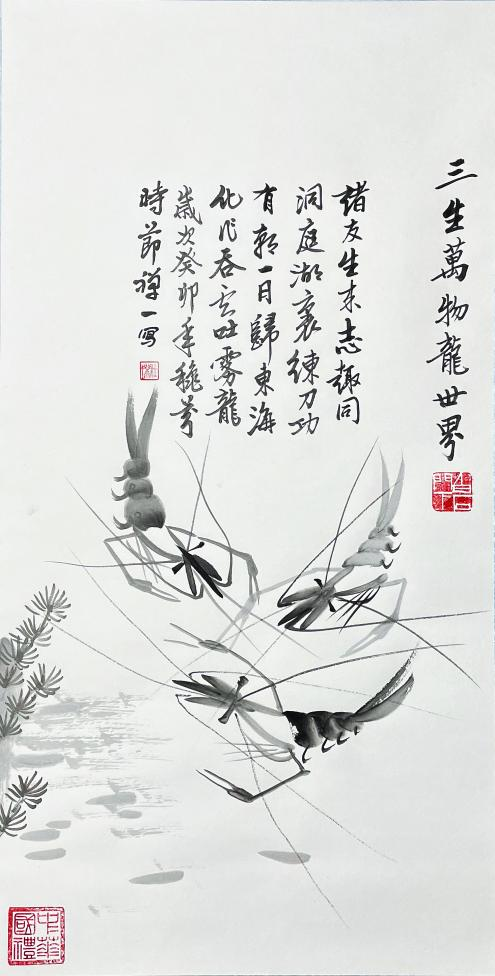 三生萬物龍世界
諸友生来志趣同
洞庭湖裏練刀功
有朝一日歸東海
化作吞云吐霧龍
歲次癸卯年
時節禅一写
中華國禮